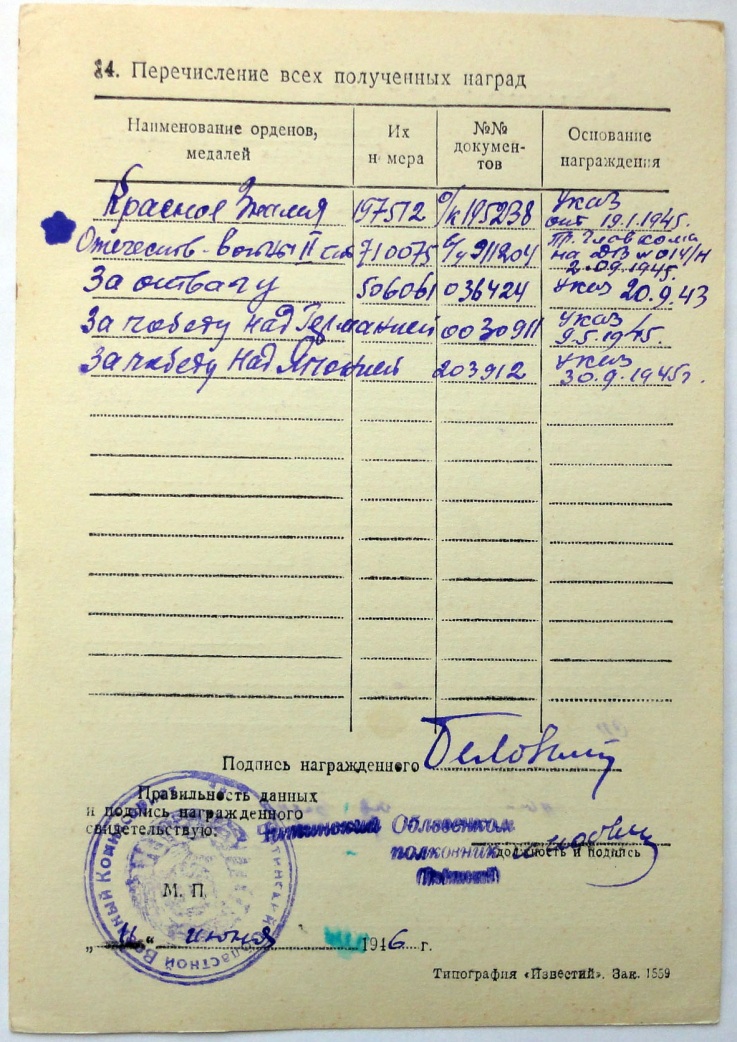 24. Перечисление всех полученных наград
Наименование орденов, медалей
Их номера
№№ документов
Основание награждения
Красное Знамя 197512 о/к 195238 Указ от 19.1.1945.
Отечеств. войны II ст 710075 911204 Пр. Главкома на ДВ № 014/н 2.09.1945.
За отвагу 506061 036424 Указ 20.9.43
За победу над Германией 0030911 Указ 9.5.1945.
За победу над Японией 203912 Указ 30.9.1945г.
Подпись награжденного
Правильность данных
и подпись награжденного
свидетельствую:
Облвоенком
полковник
должность и подпись
Областной Военный Комиссариат
М. П.
„11“ июня 1946 г.
Типография «Известий». Зак. 1559